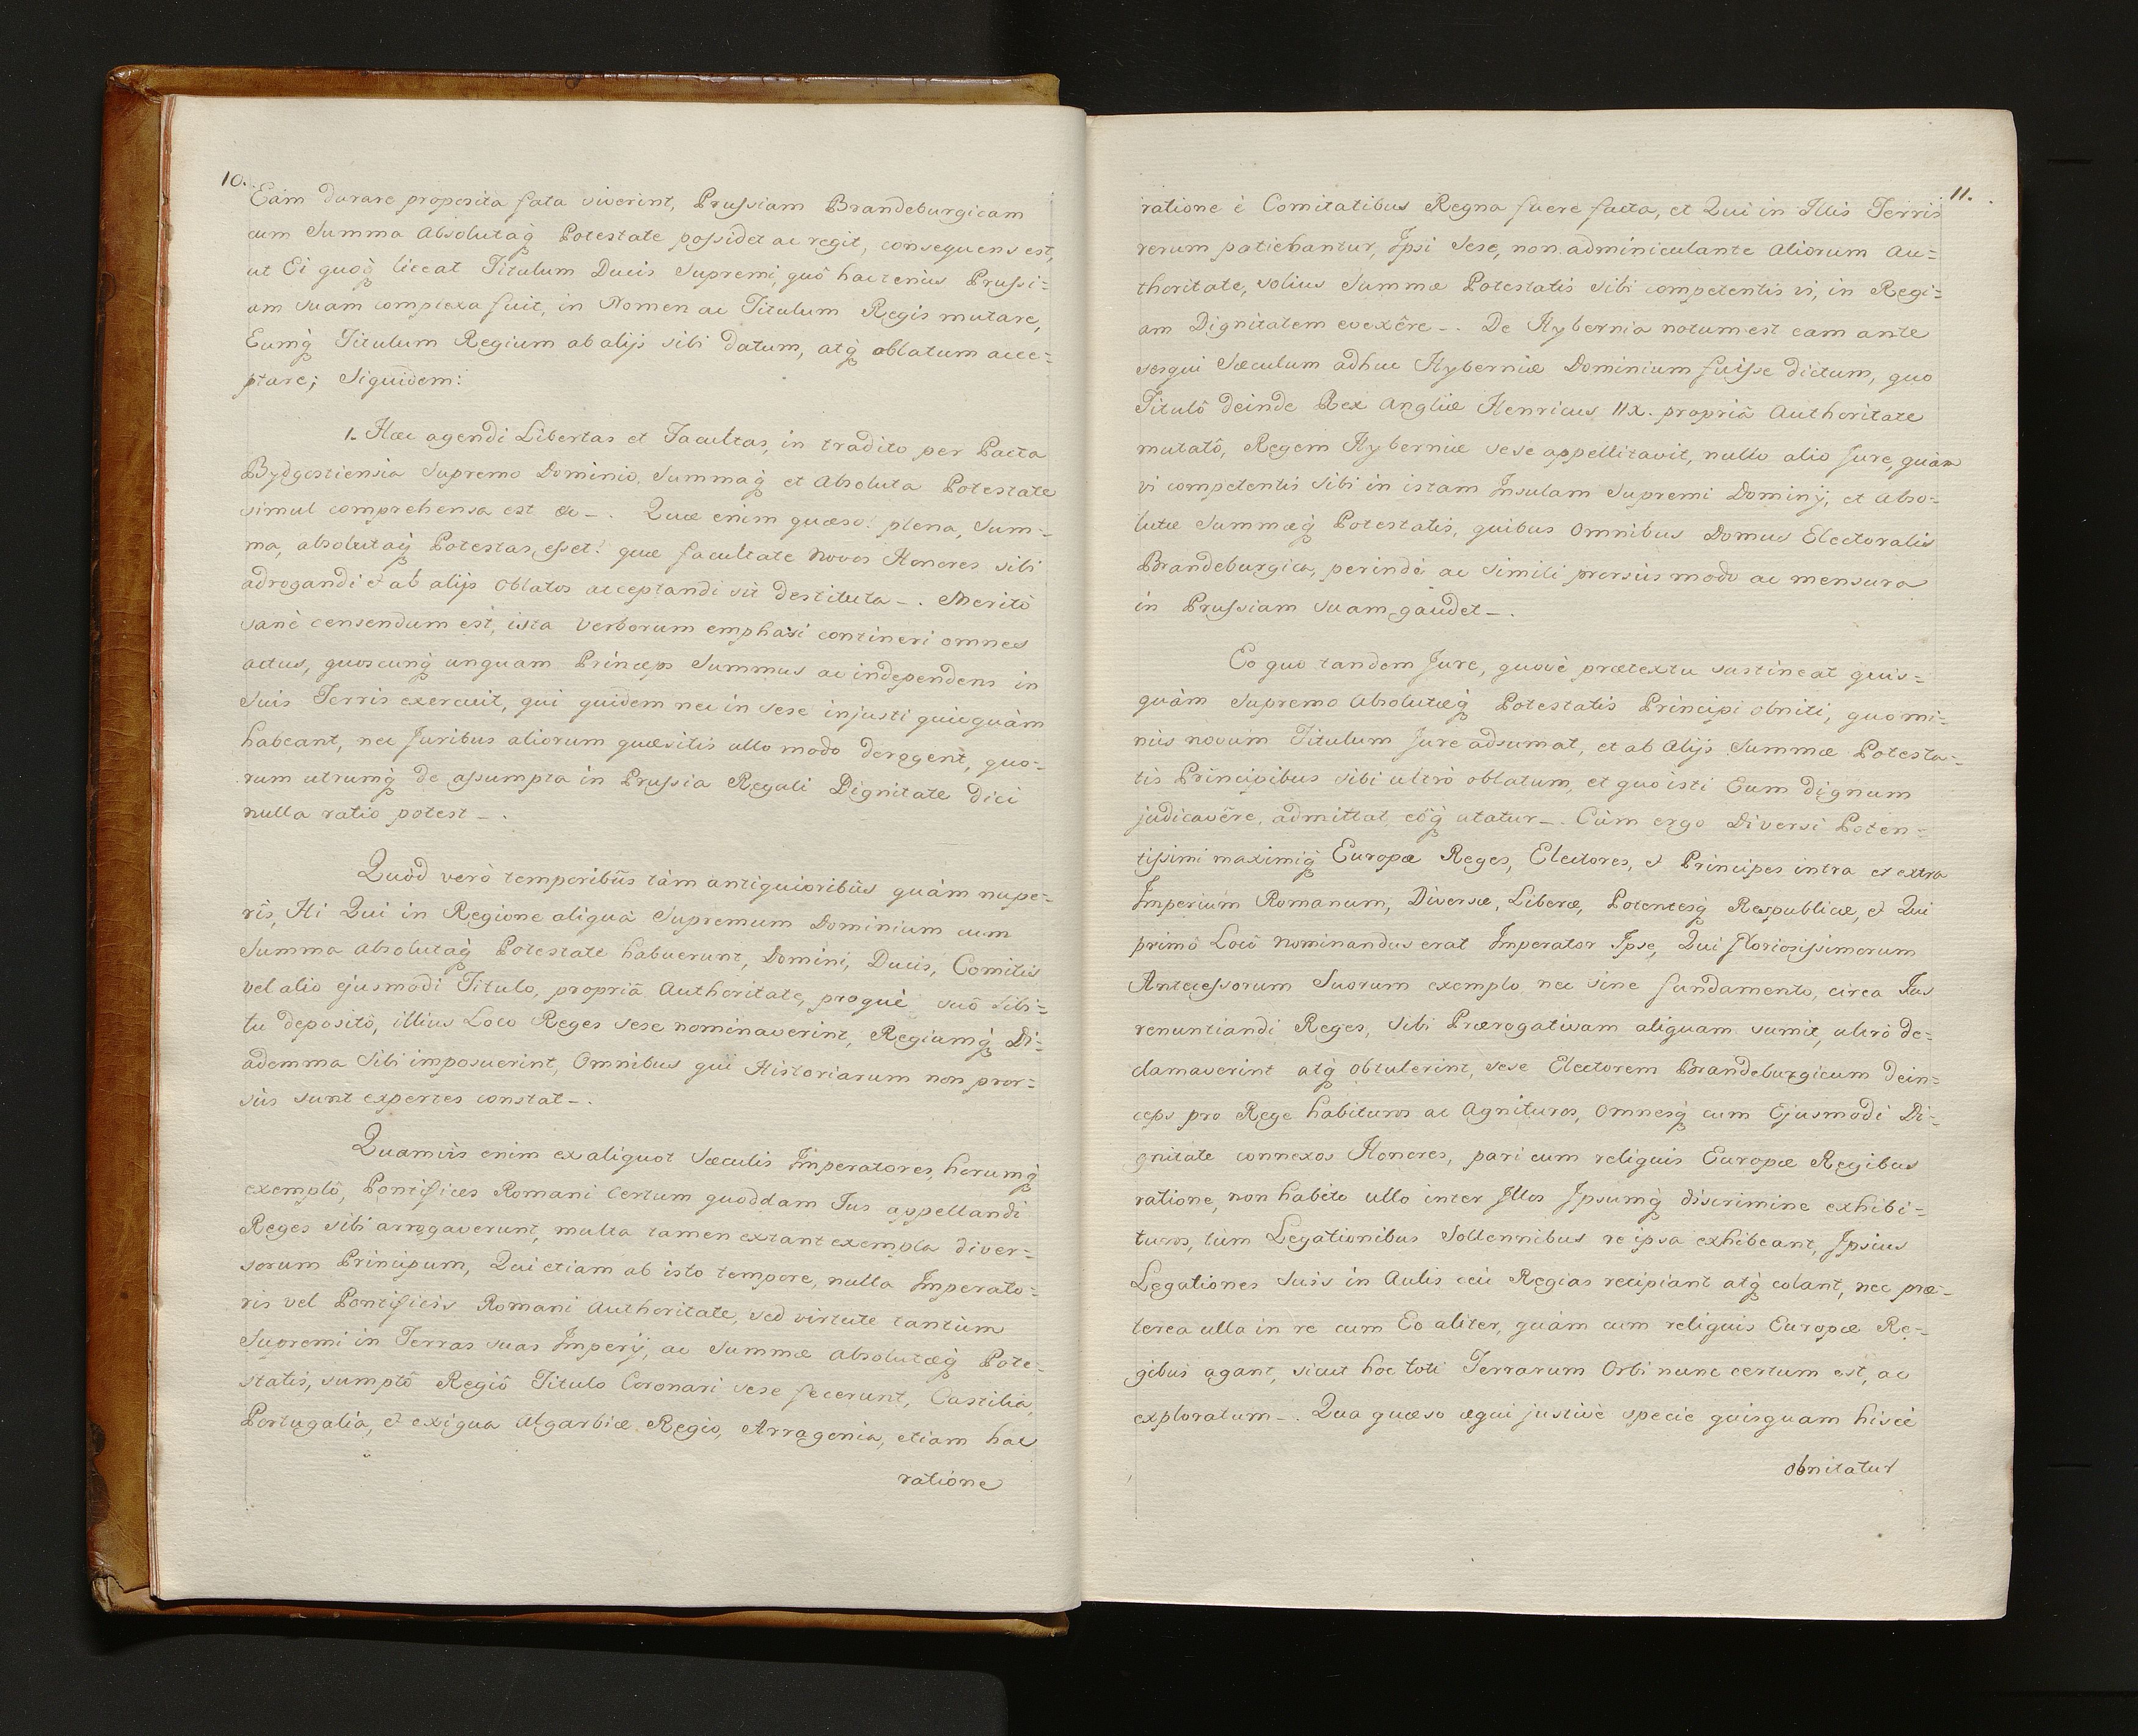 10.
Eam durare proposita fata siverint, Prussiam Brandeburgicam
cum Summa Absolutaq̃ Potestate possidet ac regit, consequens est,
ut Ei quoq̃ liceat Titulum Ducis Supremi, quô hactenus Prussi=
am suam complexa fuit, in Nomen ac Titulum Regis mutare,
Eumq̃ Titulum Regium ab alijs sibi datum, atq̃ oblatum acce=
ptare; Siquidem:
1. Hæc agendi Libertas et Facultas, in tradito per Pacta
Bydgostiensia Supremo Dominio, Summaq̃ et Absoluta Potestate
simul comprehensa est &c -. Quæ enim quæso! plena, Sum=
ma, absolutaq̃ Potestas esset! quæ facultate novos Honores sibi
adrogandi & ab alijs oblatos acceptandi sit destituta -. Meritò
sanè censendum est, ista verborum emphasi contineri omnes
actus, quoscunq̃ unquam Princeps Summus ac independens in
suis Terris exercuit, qui quidem nec in sese injusti quicquàm
habeant, nec Juribus aliorum quæsitis ullo modo derogent, quo=
rum utrumq̃ de assumpta in Prussia Regali Dignitate dici
nulla ratio potest -.
Quòd verò temporibûs tàm antiquioribûs quàm nupe=
rîs, Hi Qui in Regione aliquâ Supremum Dominium cum
Summa absolutaq̃ Potestate habuerunt, Domini, Ducis, Comitis
vel alio ejusmodi Titulo, propriâ Authoritate, proquè suô sibi=
tu depositô, illius Loco Reges sese nominaverint, Regiamq̃ Di=
ademma Sibi imposuerint, Omnibus qui Historiarum non pror=
sùs sunt expertes constat -.
Quamvis enim ex aliquot Sæculis Imperatores, horumq̃
exemplô, Pontifices Romani certum quoddam Jus appellandi
Reges sibi arrogaverunt, multa tamen extant exempla diver=
sorum Principum, Qui etiam ab isto tempore, nulla Imperato=
ris vel Pontificis Romani Authoritate, sed virtute tantùm
Supremi in Terras suas Imperij, ac Summæ absolutæq̃ Pote=
statis, sumptô Regiô Titulo Coronari sese fecerunt, Castilia,
Portugalia, & exigua Algarbiæ Regio, Arragonia, etiam hac
ratione
11.
ratione è Comitatibus Regna fuere facta, et Qui in Illis Terris
rerum patiebantur, Ipsi Sese, non adminiculante Aliorum Au=
thoritate, solius Summæ Potestatis sibi competentis vi, in Regi=
am Dignitatem evexêre -. De Hybernia notum est eam ante
sesqui Sæculum adhuc Hyberniæ Dominium fuisse dictum, quo
Titulô deinde Rex Angliæ Henricus IIX. propriâ Authoritate
mutatô, Regem Hyberniæ sese appellitavit, nullo alio Jure, quàm
vi competentis sibi in istam Insulam Supremi Dominij, et Abso=
lutæ Summæq̃ Potestatis, quibus Omnibus Domus Electoralis
Brandeburgica, perindè ac simili prorsùs modo ac mensura
in Prussiam suam gaudet -.
Eo quo tandem Jure, quovè prætextu sustineat quis=
quàm Supremo Absolutæq̃ Potestatis Principi obniti, quo mi=
nùs novum Titulum Jure adsumat, et ab Alijs Summæ Potesta=
tis Principibus sibi ultrò oblatum, et quo isti Eum dignum
judicavêre, admittat, eôq̃ utatur -. Cùm ergo Diversi Poten=
tissimi maximiq̃ Europæ Reges, Electores, & Principes intra et extra
Imperium Romanum, Diversæ, Liberæ, Potentesq̃ Respublicæ, & Qui
primô Locô nominandus erat Imperator Ipse, Qui Gloriosissimorum
Antecessorum Suorum exemplo nec sine fundamento, circa Jus
renuntiandi Reges, sibi Prærogativam aliquam sumit, ultrò de=
clamaverint atq̃ obtulerint, sese Electorem Brandeburgicum dein=
ceps pro Rege habituros ac Agnituros, Omnesq̃ cum Ejusmodi Di=
gnitate connexos Honores, pari cum reliquis Europæ Regibus
ratione, non habito ullo inter Illos Ipsumq̃ discrimine exhibi=
turos, tùm Legationibus Sollennibus re ipsa exhibeant, Ipsius
Legationes Suis in Aulis ceù Regias recipiant atq̃ colant, nec præ=
terea ulla in re cum Eo aliter, quàm cum reliquis Europæ Re=
gibus agant, sicut hoc toti Terrarum Orbi nunc certum est, ac
exploratum -. Qua quæso æqui justivè specie quisquam hiscè
obnitatur